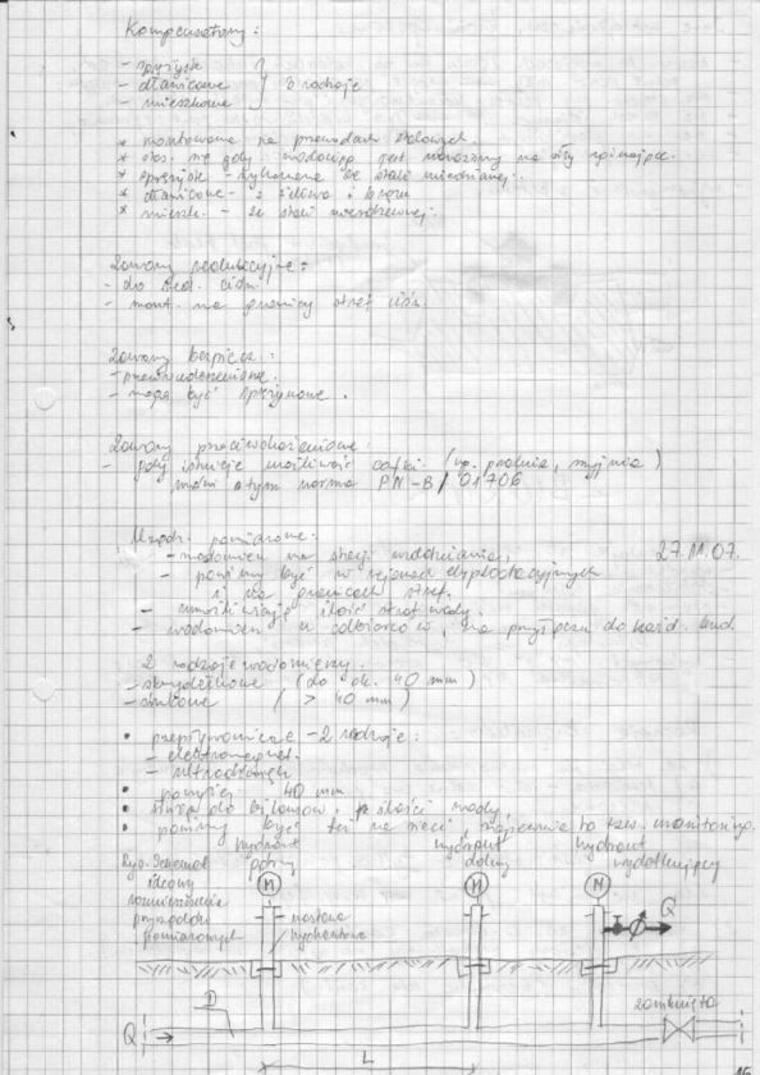 Kompensatory:
- spręż.
- dławicowe } 3 rodzaje
- mieszkowe
* montowane na przewodach stalowych.
* stos. się gdy wodociąg jest narażony na siły
* spręż. - wykonane ze stali miedzianej.
* dławicowe - z żeliwa i brązu
* mieszk. - ze stali nierdzewnej.
Zawory redukcyjne:
- do red. ciśn.
- mont. na granicy stref ciśn.
Zawory bezpiecz.:
- przeciwuderzeniowe.
- mogą być sprężynowe.
Zawory przeciwskażeniowe
- gdy istnieje możliwość cofki. (np. pralnia, myjnia)
mówi o tym norma PN-B/01706
Urządz. pomiarowe:
- wodomierz na stacji uzdatniania, 27.11.07.
- powinny być w rejonach eksploatacyjnych
i na granicach stref.
- umożliwiają ilość strat wody.
- wodomierz u odbiorców, na przyłączu do każd. bud.
2 rodzaje wodomierzy.
- skrzydełkowe (do ok. 40 mm)
- śrubowe ( > 40 mm)
• przepływomierze - 2 rodzaje:
- elektromagnet.
- ultradźwięk.
• powyżej 40 mm
• służą do bilansów ilości wody.
• powinny być też na sieci, to tzw. monitoring.
Rys. Schemat hydrant hydrant hydrant
ideowy górny dolny wydatkujący
rozmieszczenia M M M
przyrządów nastawa Q
pomiarowych hydrantowa
D zamknięta
Q
L
16